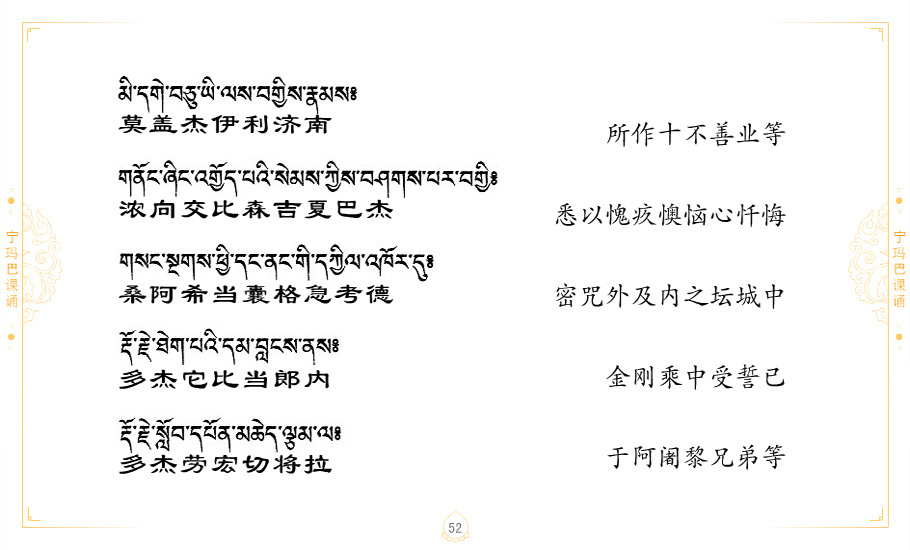 མི་དགེ་བཅུ་ཡི་ལས་བགྱིས་རྣམས༔
莫盖杰伊利济南
所作十不善业等
གནོང་ཞིང་འགྱོད་པའི་སེམས་ཀྱིས་བཤགས་པར་བགྱི༔
浓向交比森吉夏巴杰
悉以愧疚懊恼心忏悔
གསང་སྔགས་ཕྱི་དང་ནང་གི་དཀྱིལ་འཁོར་དུ༔
桑阿希当囊格急考德
密咒外及内之坛城中
རྡོ་རྗེ་ཐེག་པའི་དམ་བླངས་ནས༔
多杰它比当郎内
金刚乘中受誓已
རྡོ་རྗེ་སློབ་དཔོན་མཆེད་ལྕམ་ལ༔
多杰劳宏切将拉
于阿阇黎兄弟等
宁玛巴课诵
宁玛巴课诵
52